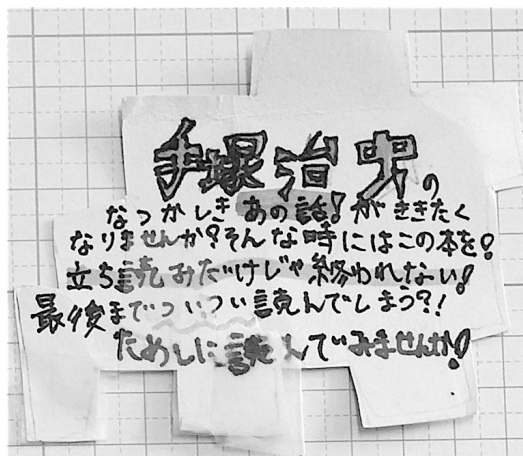 手塚治虫の
なつかしきあの話!がききたく
なりませんか?そんな時にはこの本を!
立ち読みだけじゃ終われない!
最後までついつい読んでしまう?!
ためしに読んでみませんか!